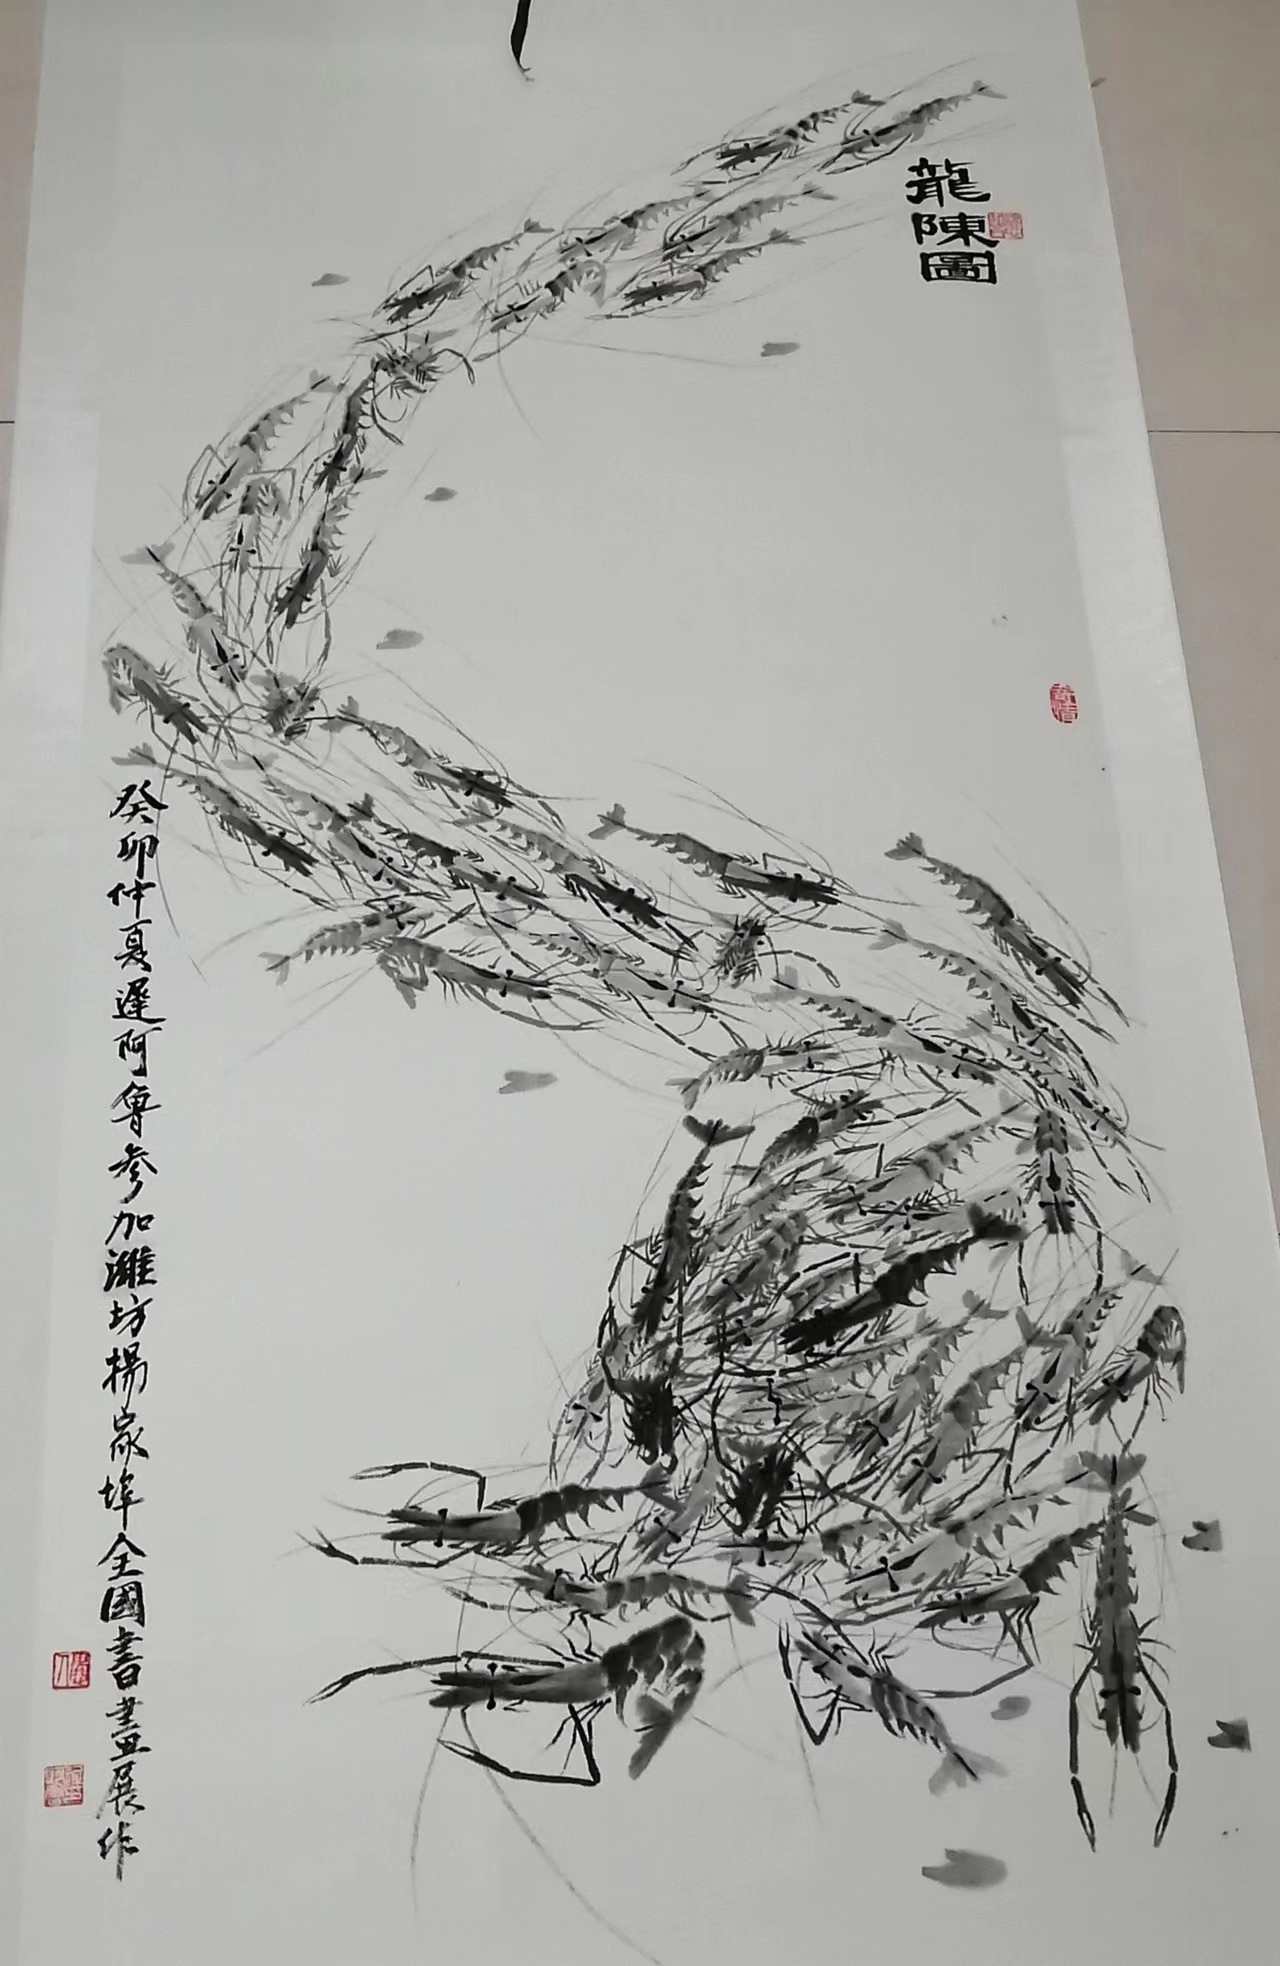 龍陳圖
癸卯仲夏遲阿魯參加濰坊楊家埠全國書畫展作